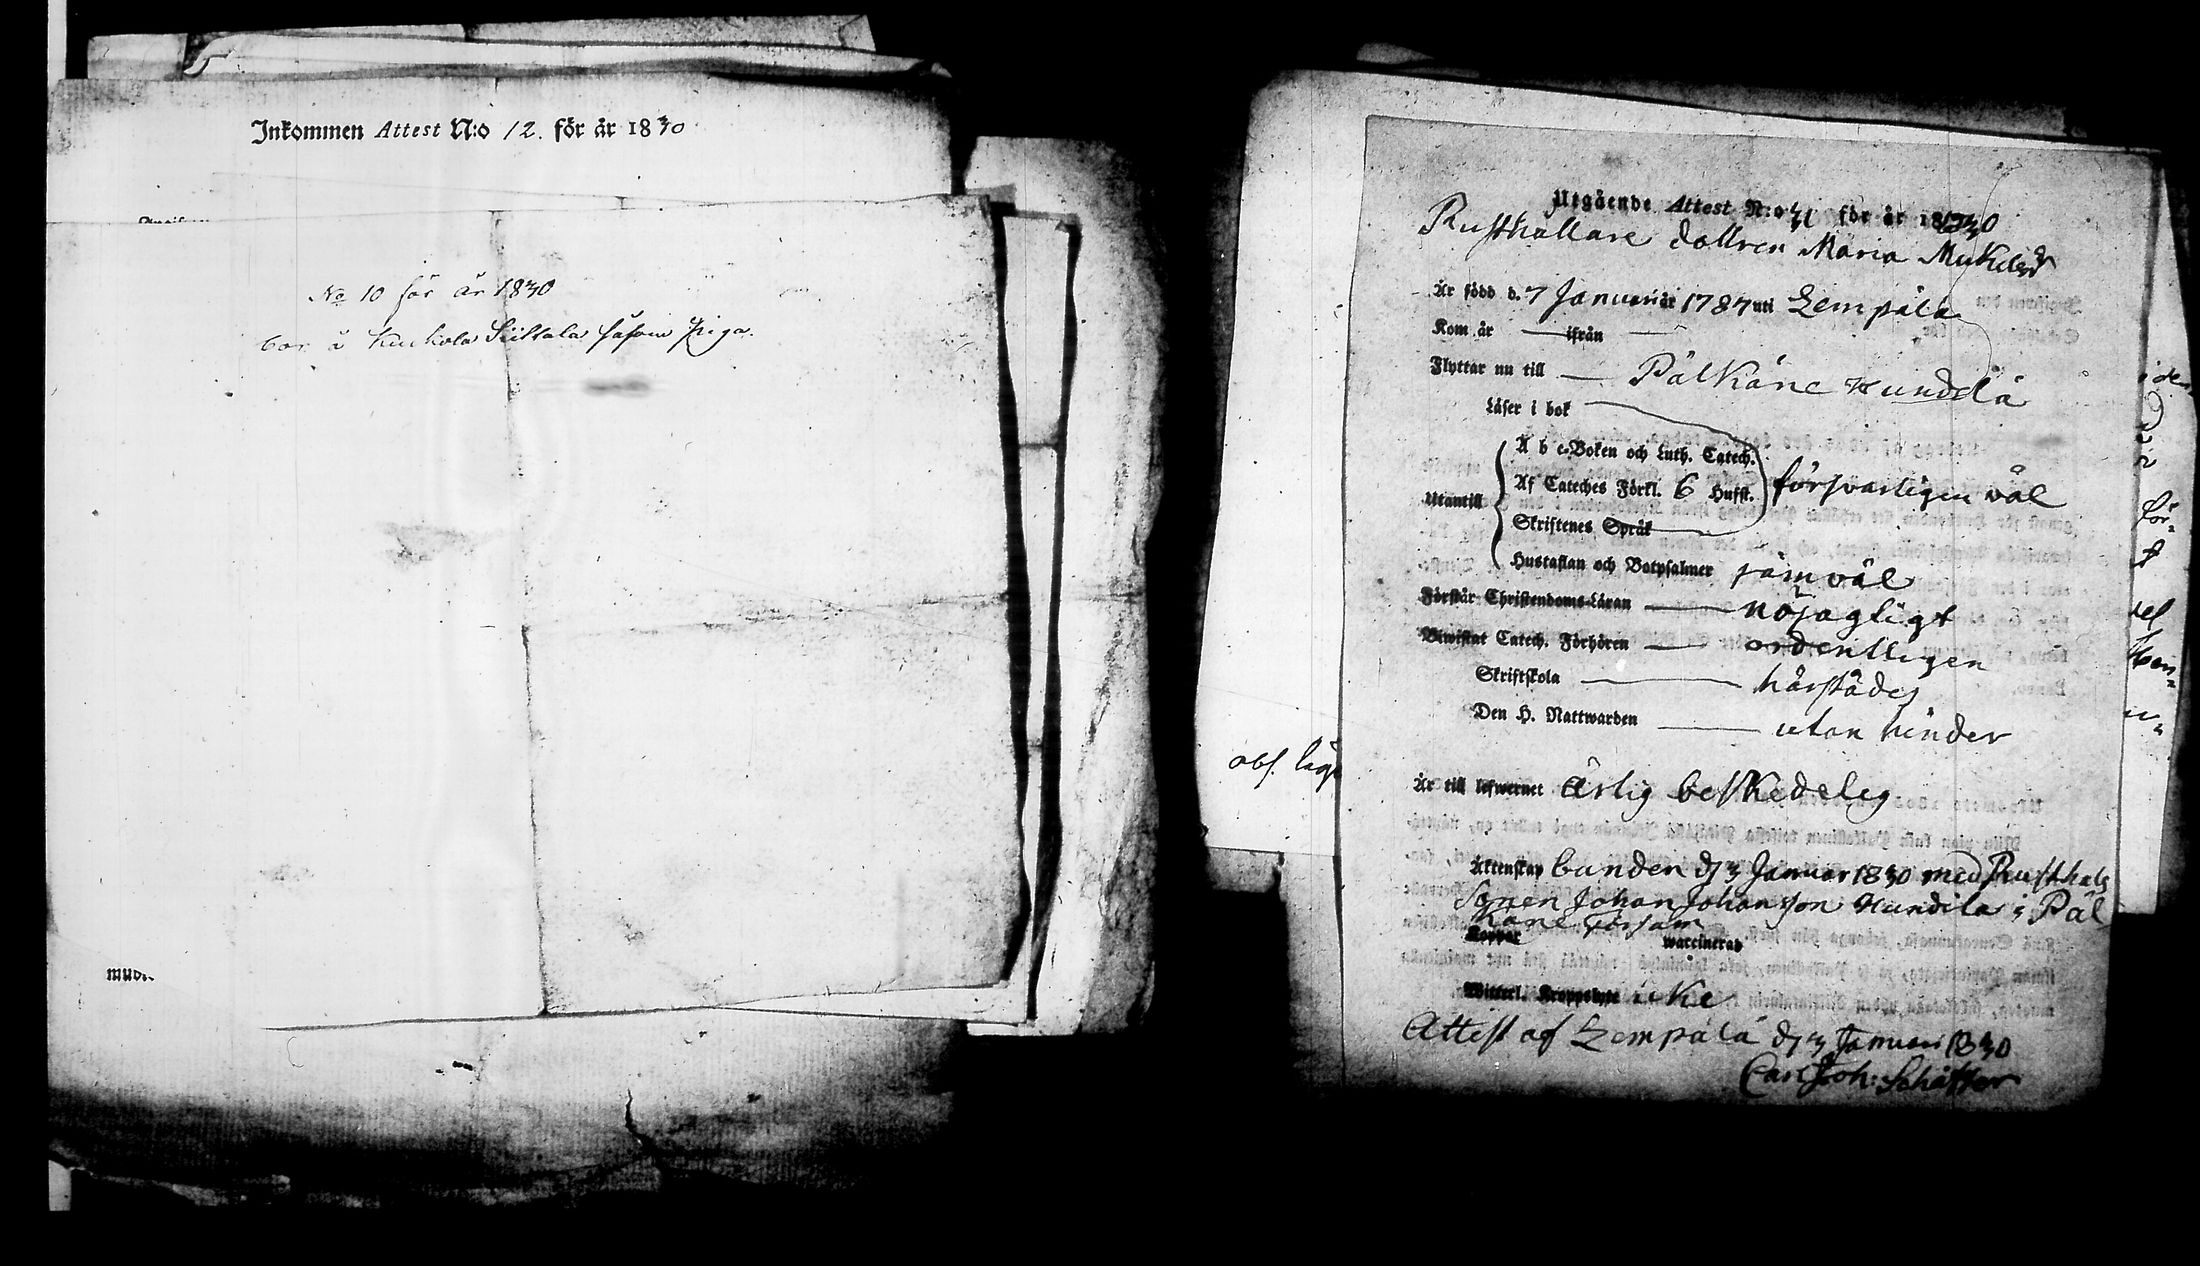 Inkommen Attest N:o 12. för år 1830
No 10 för år 1830
bor å Kuckola Siukola såsom Piga.
mud
Utgående Attest N:o 31 för år 1830
Rusthållare dottren Maria Mickelsdr
Är född d. 7 Januari år 1787 uti Lempälä
Kom år — ifrån —
Flyttar nu till — Pälkäne Hundila
Läser i bok
A b c-Boken och Luth. Catech.
Utantill Af Cateches Förkl. 6 Hufst. försvarligen väl
Skriftenes Språk
Hustaflan och Botpsalmer jämväl
Förstår Christendoms-Läran — nöjagligt
Biwistat Catech. Förhören — ordentligen
Skriftskola — härstädes
Den H. Nattwarden — utan hinder
obs. läge
Är till lefwernet ärlig beskedelig
Äktenskap bunden d 3 Januar 1830 med Rusthåls
Sonen Johan Johansson Hundila i Päl
käne Församl
Koppor waccinerad
Witterl. Kroppslyte icke
Attest af Lempälä d 3 Januari 1830
Carl Joh: Schäffer